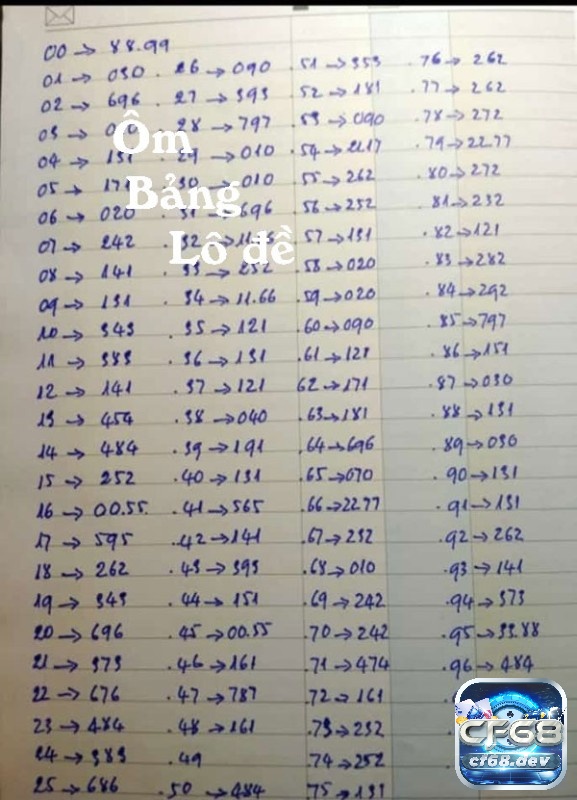 00 → 88.99
01 → 030
02 → 696
03 →
04 → 131
05 → 171
06 → 020
07 → 242
08 → 141
09 → 131
10 → 343
11 → 383
12 → 141
13 → 454
14 → 484
15 → 252
16 → 00.55.
17 → 595
18 → 262
19 → 343
20 → 696
21 → 373
22 → 676
23 → 484
24 → 383
25 → 686
. 26 → 090
. 27 → 393
. 28 → 797
. 29 → 010
. 30 → 010
. 31 → 696
. 32 →
. 33 → 252
. 34 → 11.66
. 35 → 121
. 36 → 131
. 37 → 121
. 38 → 040
. 39 → 191
. 40 → 131
. 41 → 565
. 42 → 141
. 43 → 393
. 44 → 151
. 45 → 00.55
. 46 → 161
. 47 → 787
. 48 → 161
. 49
. 50 → 484
. 51 → 353
. 52 → 181
. 53 → 090
. 54 →
. 55 → 262
. 56 → 252
. 57 → 131
. 58 → 020
. 59 → 020
. 60 → 090
. 61 → 121
62 → 171
. 63 → 181
. 64 → 696
. 65 → 070
. 66 → 22.77
. 67 → 232
. 68 → 010
. 69 → 242
. 70 → 242
. 71 → 474
. 72 → 161
. 73 → 232
. 74 → 252
. 75 → 131
. 76 → 262
. 77 → 262
. 78 → 272
. 79 → 22.77
. 80 → 272
. 81 → 232
. 82 → 121
. 83 → 282
. 84 → 292
. 85 → 797
. 86 → 151
. 87 → 030
. 88 → 131
. 89 → 030
. 90 → 131
. 91 → 131
. 92 → 262
. 93 → 141
. 94 → 373
. 95 → 33.88
. 96 → 484
Ôm
Bảng
Lô đề
CF68
cf68.dev